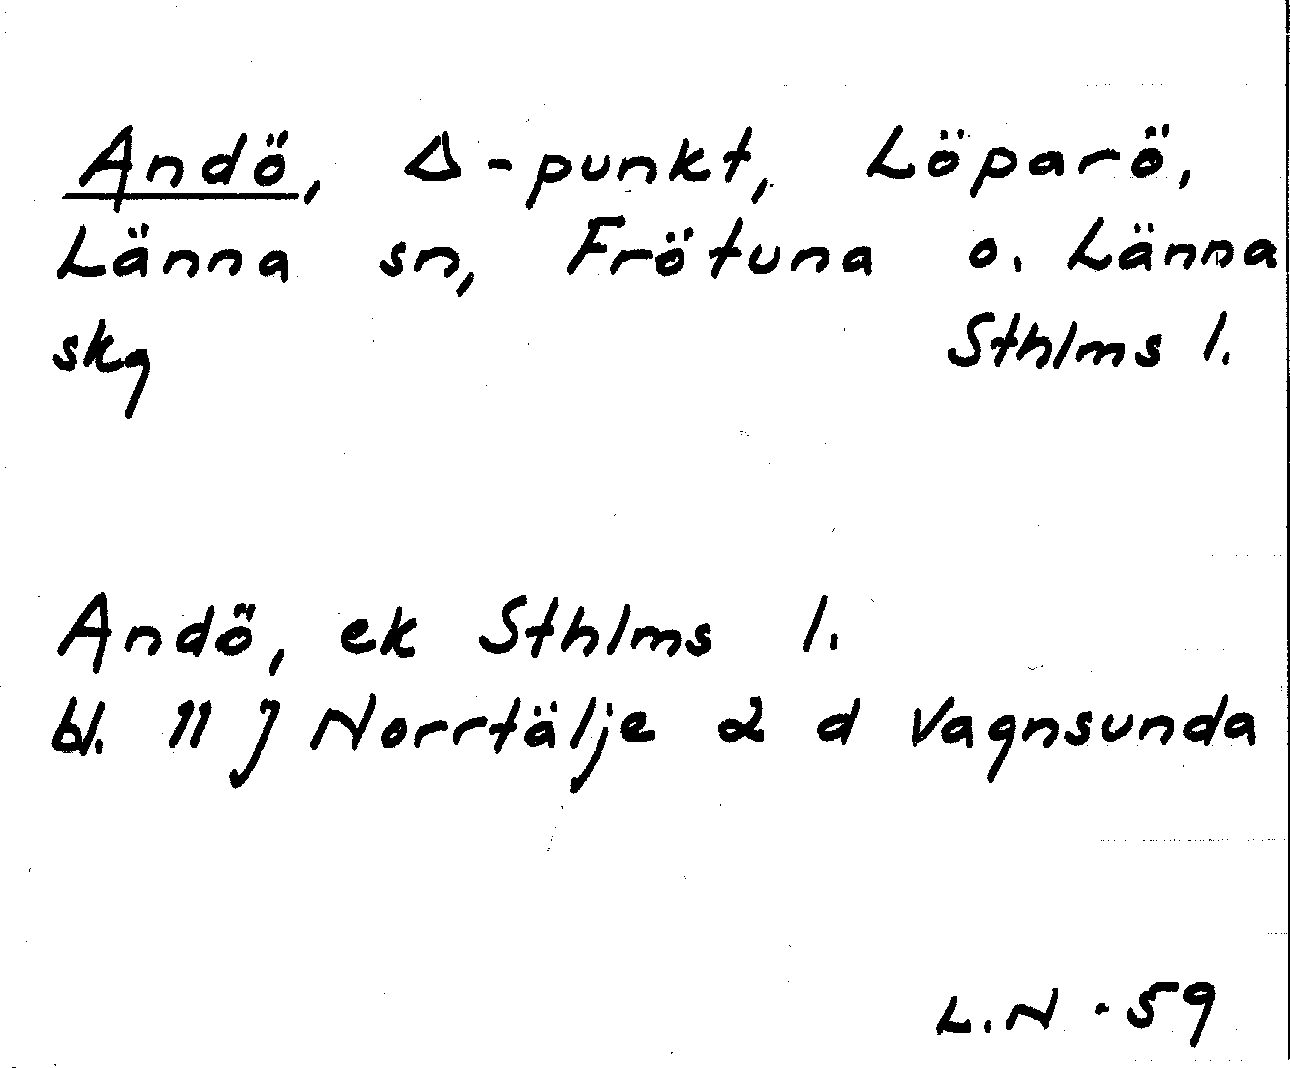 Andö, Δ-punkt, Löparö,
Länna sn, Frötuna o. Länna
skg Sthlms l.
Andö, ek Sthlms l.
bl. 11 J Norrtälje 2 d Vagnsunda
L.N -59